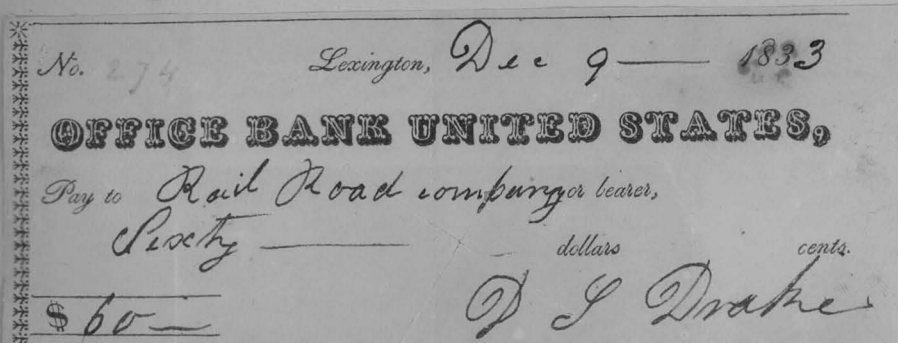 No. 274 Lexington, Dec 9 — 1833
OFFICE BANK UNITED STATES,
Pay to Rail Road company or bearer,
Sixty — dollars cents.
$ 60 — D S Drake